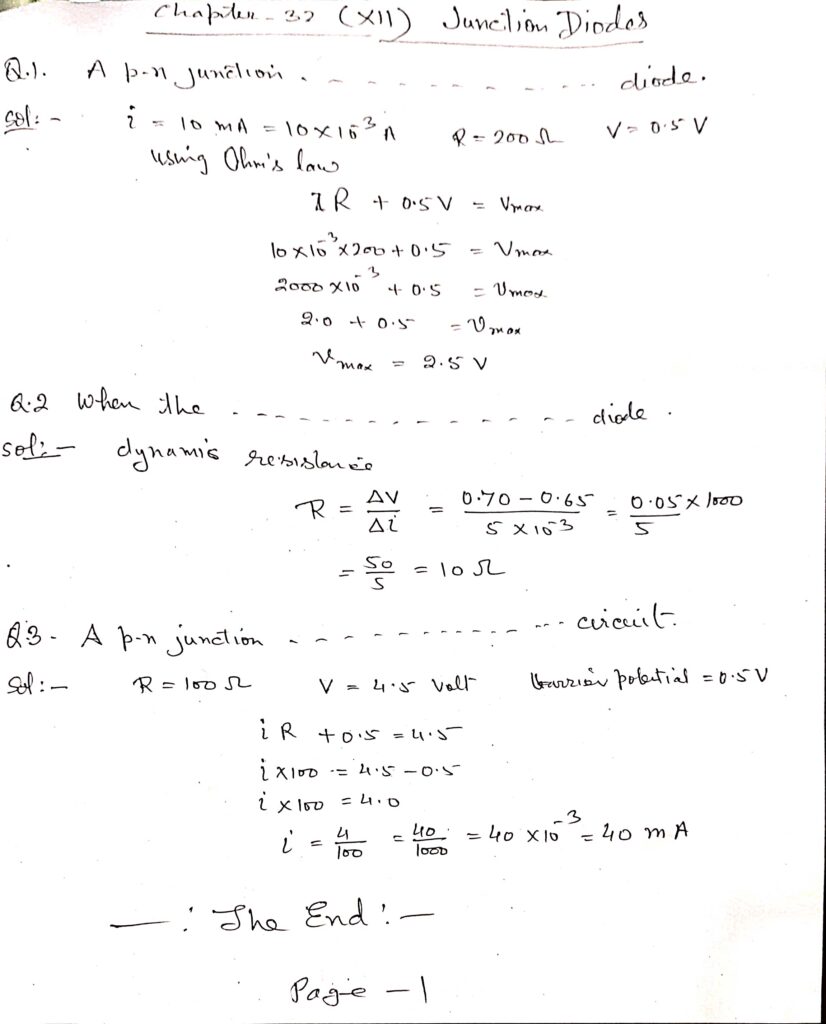 Chapter - 32 (XII) Junction Diodes
Q.1. A p-n junction . - - - - - - - ... diode.
Sol: - i = 10 mA = 10×10⁻³ A R = 200 Ω V = 0.5 V
using Ohm's law
iR + 0.5 V = Vmax
10×10⁻³×200 + 0.5 = Vmax
2000×10⁻³ + 0.5 = Vmax
2.0 + 0.5 = Vmax
Vmax = 2.5 V
Q.2 When the - - - - - - - - - - - - - diode .
sol: - dynamic resistance
R = ΔV/Δi = (0.70 - 0.65)/(5 × 10⁻³) = (0.05 × 1000)/5
= 50/5 = 10 Ω
Q3 - A p-n junction - - - - - - - - - - - - ... circuit.
Sol: - R = 100 Ω V = 4.5 Volt barrier potential = 0.5 V
i R + 0.5 = 4.5
i × 100 = 4.5 - 0.5
i × 100 = 4.0
i = 4/100 = 40/1000 = 40 × 10⁻³ = 40 mA
— : The End : —
Page - 1